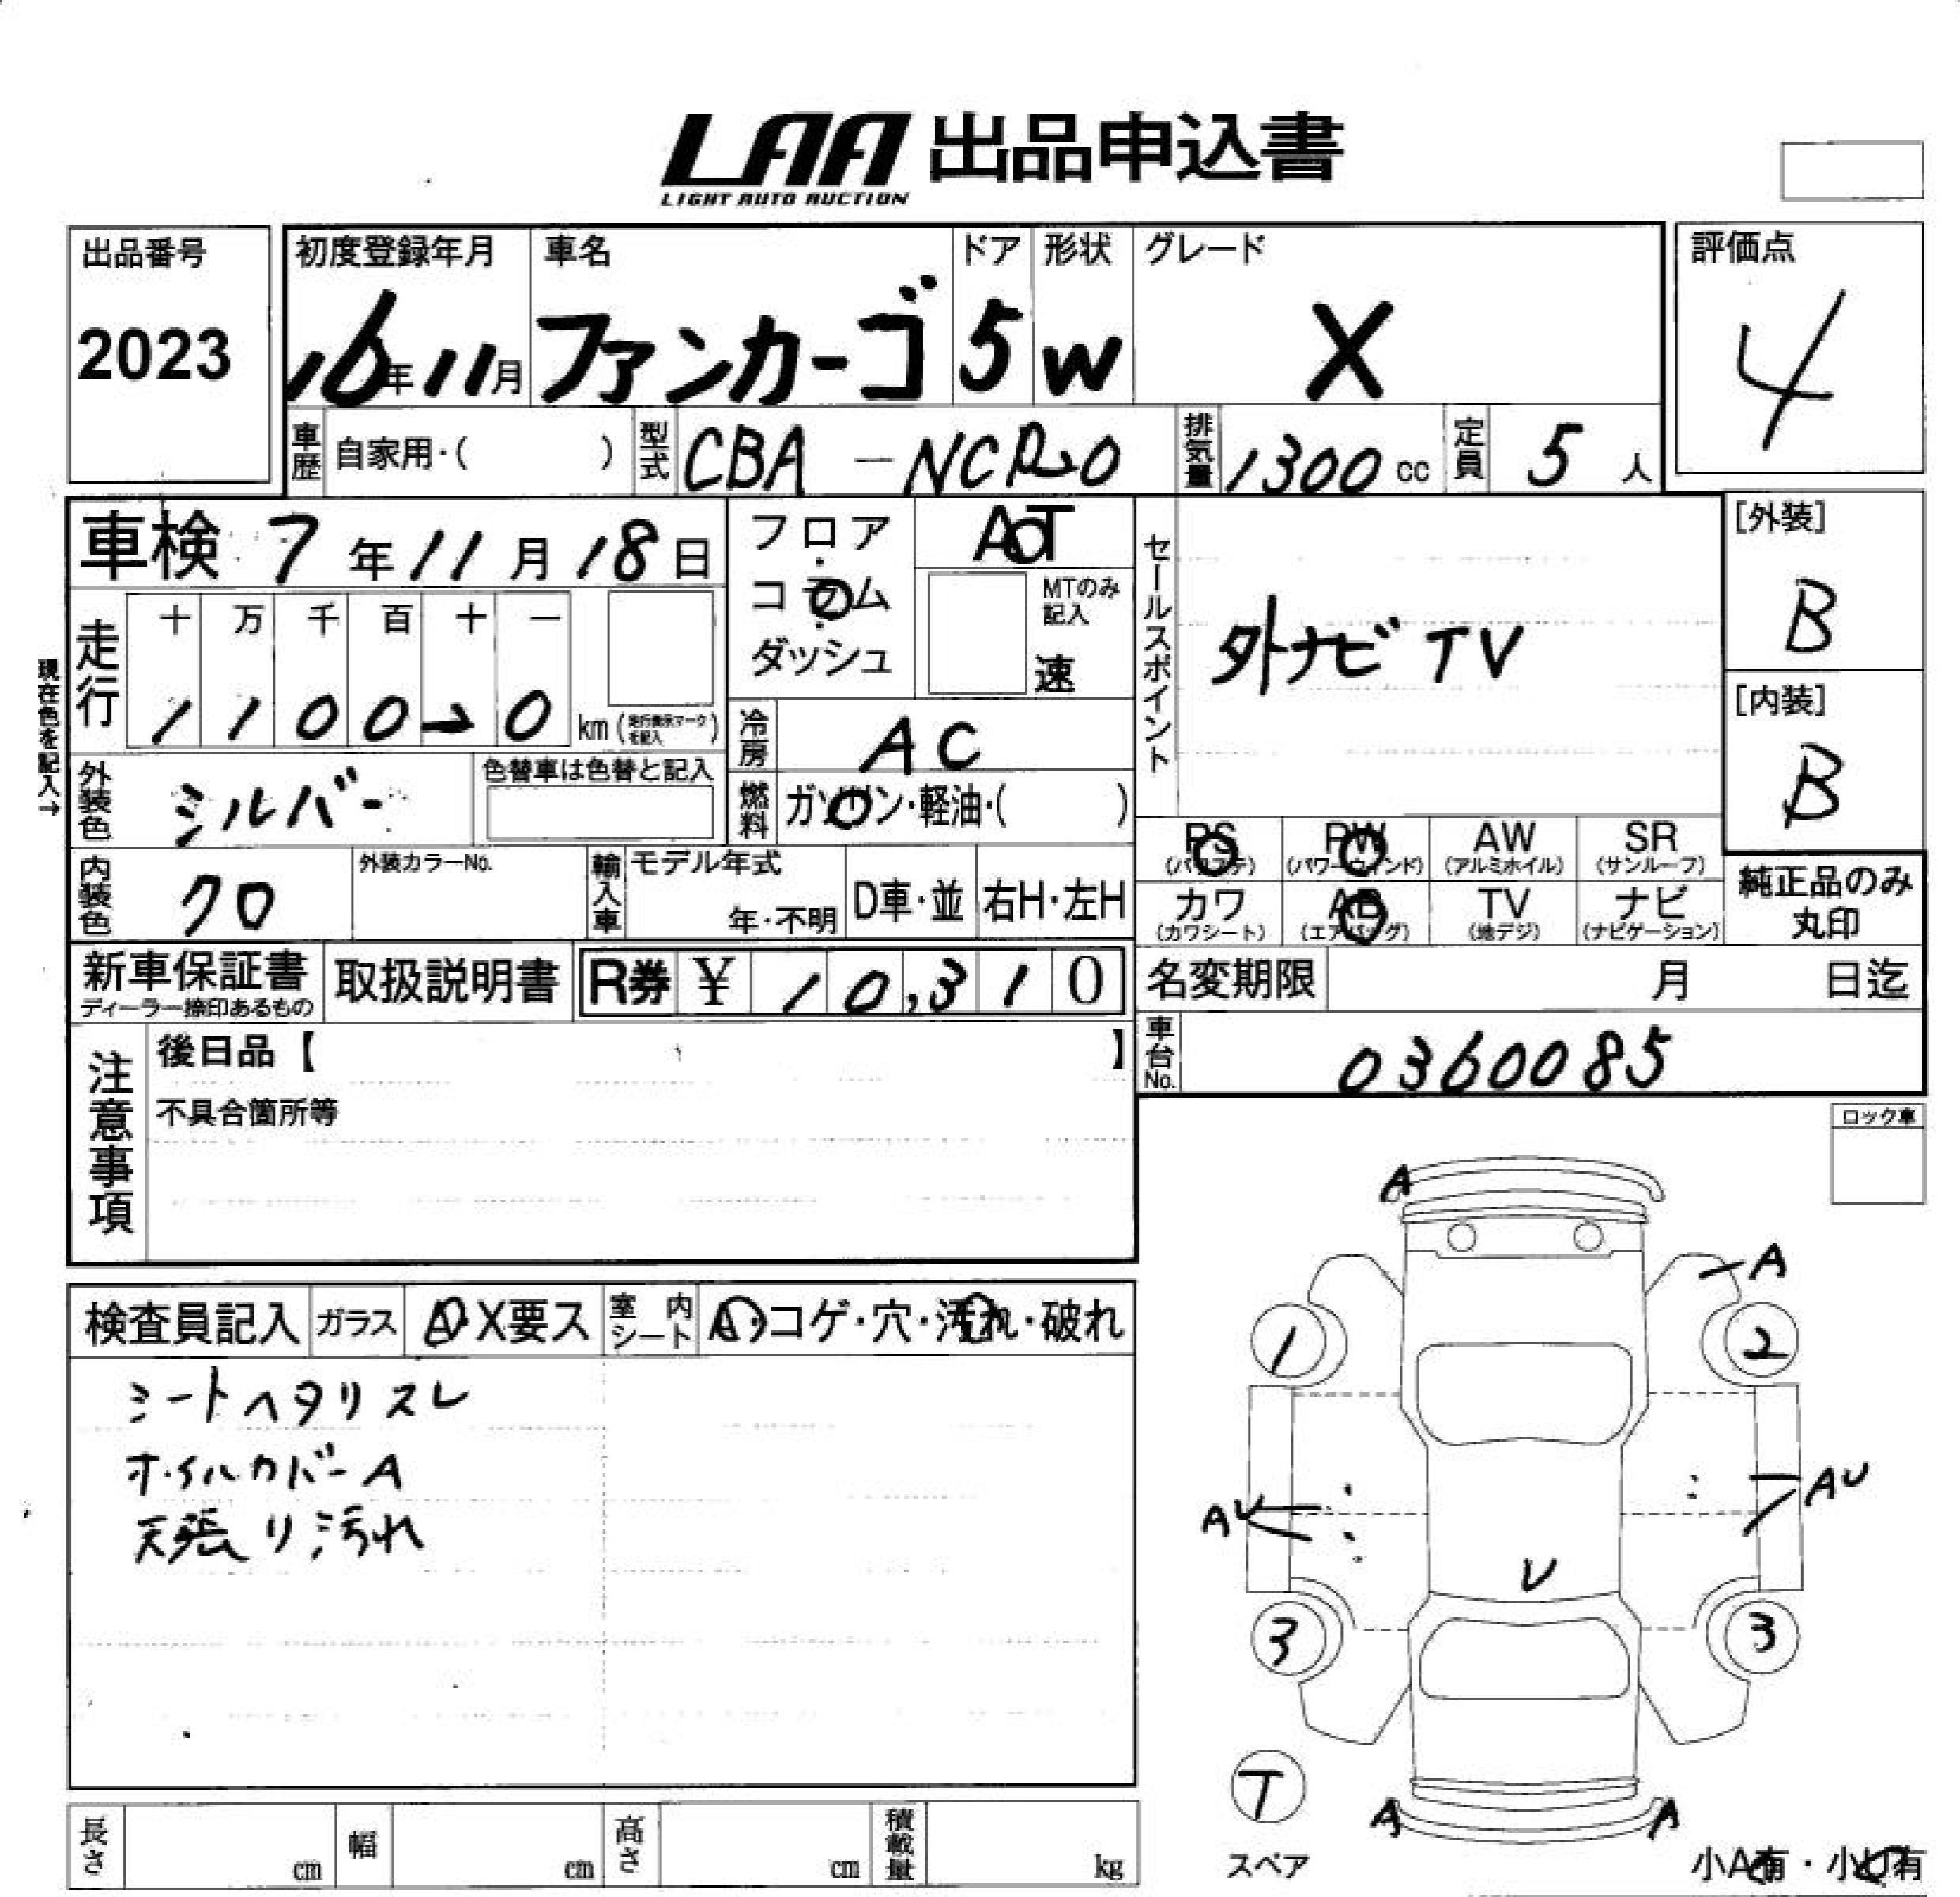 LAA 出品申込書
LIGHT AUTO AUCTION
出品番号
2023
初度登録年月
16年11月
車名
ファンカーゴ
ドア
5
形状
W
グレード
X
評価点
4
車歴 自家用・( )
型式 CBA-NCP20
排気量 1300 cc
定員 5 人
車検 7年11月18日
フロア・コラム・ダッシュ
AT
MTのみ記入
速
セールスポイント
外ナビ TV
[外装]
B
[内装]
B
現在色を記入→
走行
十 万 千 百 十 一
1 1 0 0 2 0 km (走行表示マークを記入)
冷房 AC
燃料 ガソリン・軽油・( )
外装色 シルバー
色替車は色替と記入
内装色 クロ
外装カラーNo.
輸入車
モデル年式
年・不明
D車・並
右H・左H
PS
(パワステ)
PW
(パワーウィンド)
AW
(アルミホイル)
SR
(サンルーフ)
カワ
(カワシート)
AB
(エアバッグ)
TV
(地デジ)
ナビ
(ナビゲーション)
純正品のみ
丸印
新車保証書
ディーラー捺印あるもの
取扱説明書
R券 ¥ 10,310
名変期限 月 日迄
車台No. 0360085
注意事項
後日品【 】
不具合箇所等
ロック車
検査員記入
ガラス A・X要ス
室内シート A・コゲ・穴・汚れ・破れ
シートヘタリスレ
ホイルカバーA
天張り汚れ
A
A
1
2
AU
AU
U
3
3
T
スペア
A
A
小A有・小U有
長さ cm
幅 cm
高さ cm
積載量 kg